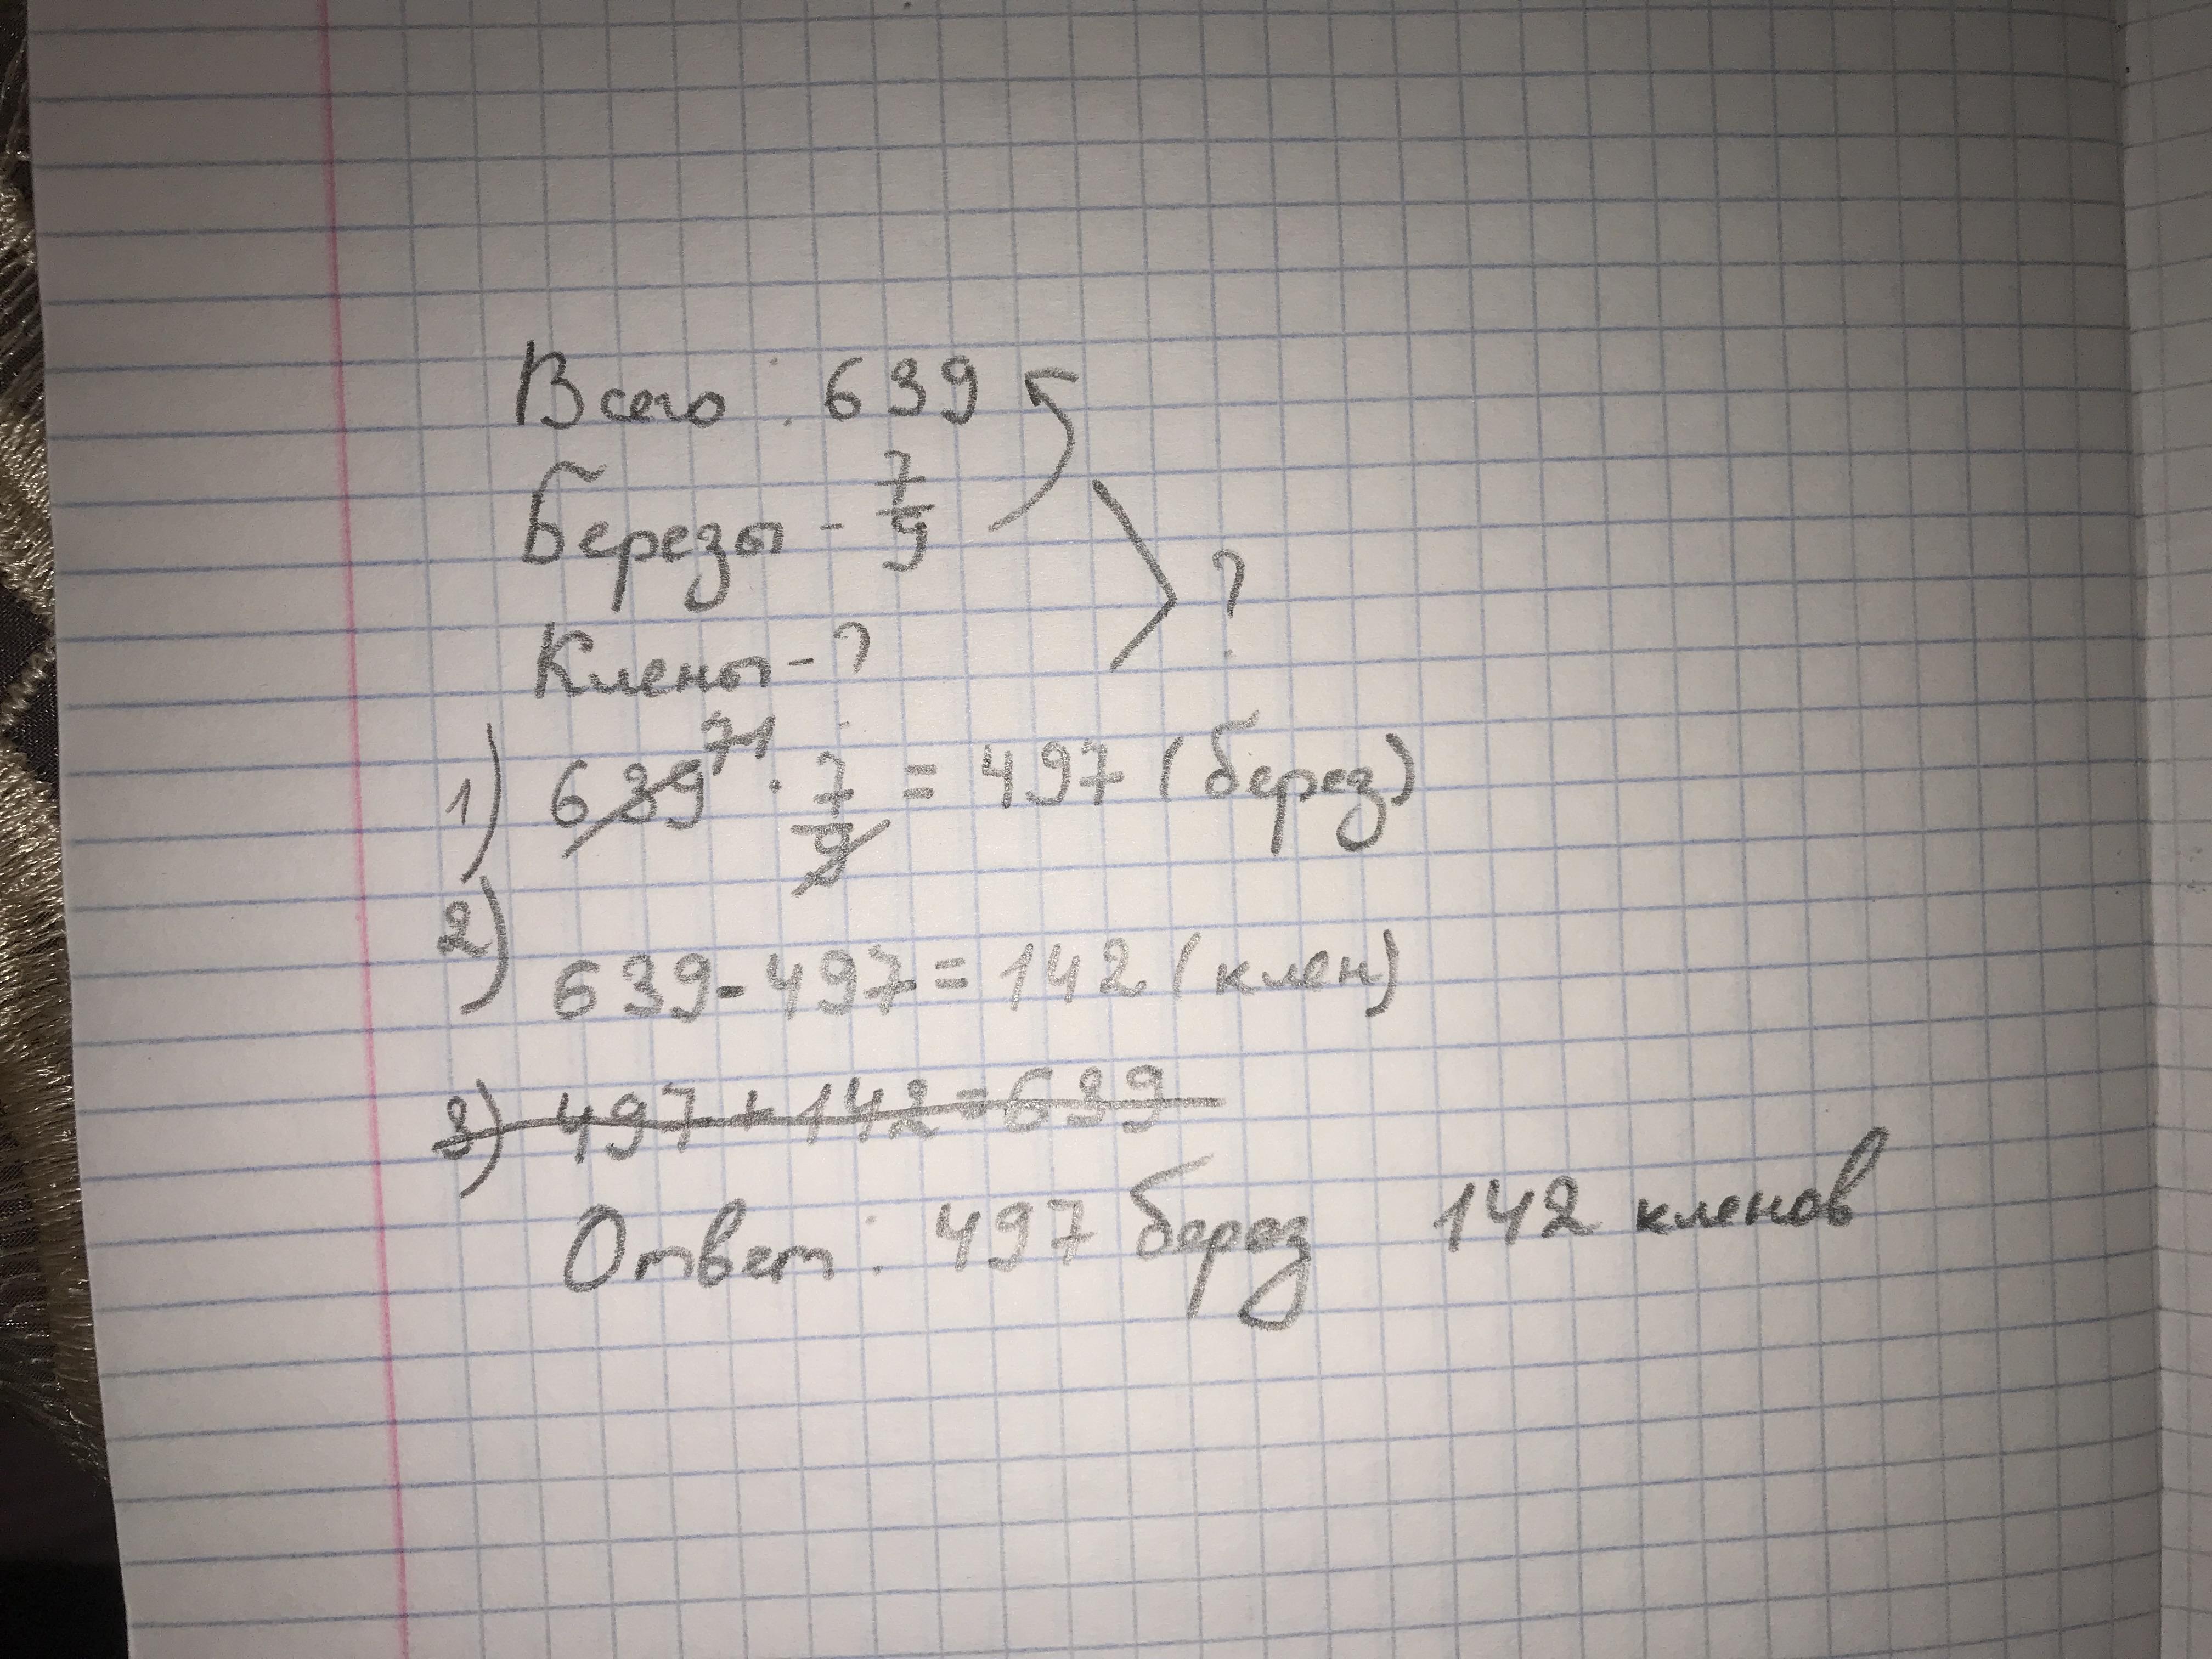 Всего : 639
Березы - 7/9
Клены - ? ?
1) 639 71 · 7/9 = 497 (берез)
2) 639 - 497 = 142 (клен)
3) 497 + 142 = 639
Ответ : 497 берез 142 кленов